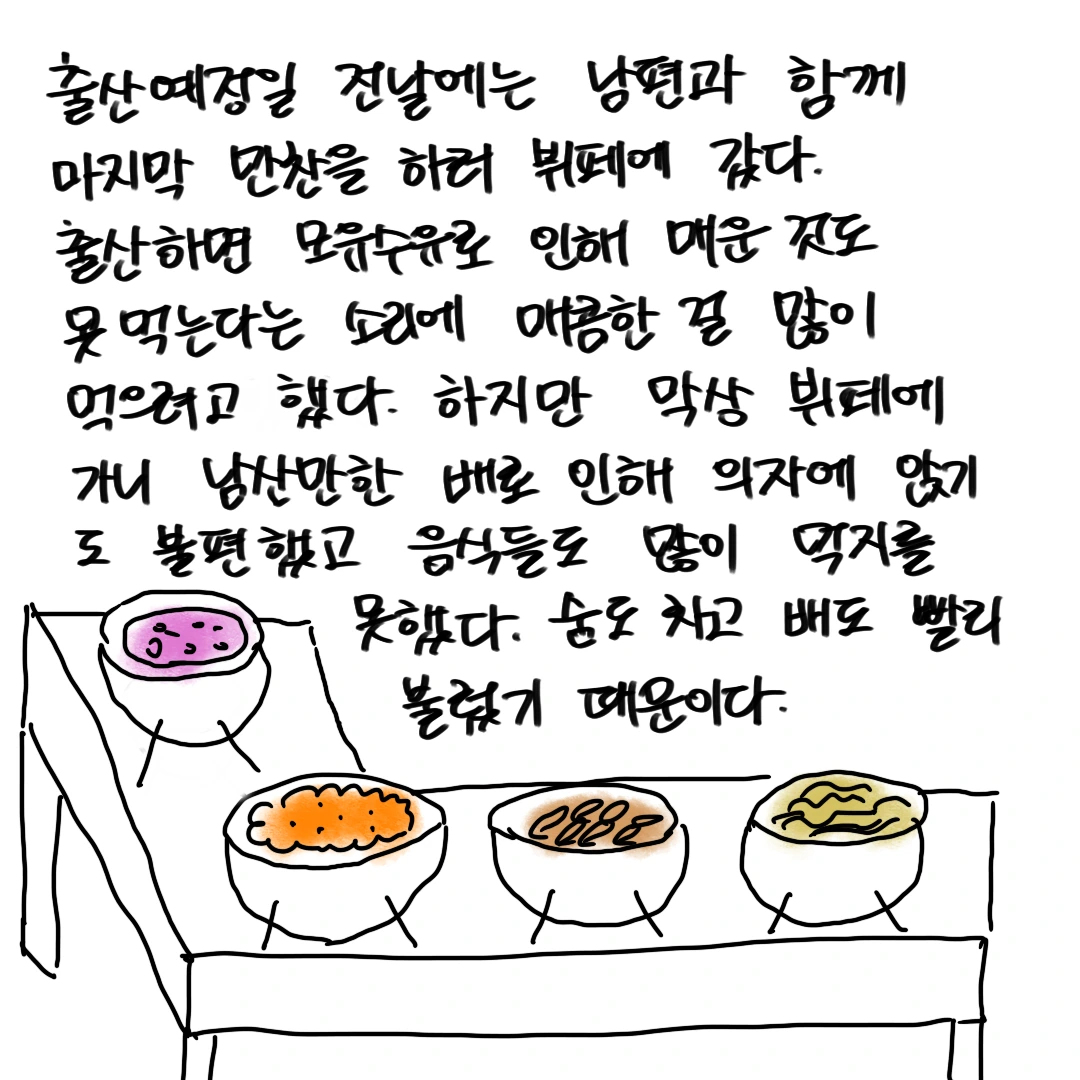 출산예정일 전날에는 남편과 함께
마지막 만찬을 하러 뷔페에 갔다.
출산하면 모유수유로 인해 매운 것도
못 먹는다는 소리에 매콤한 걸 많이
먹으려고 했다. 하지만 막상 뷔페에
가니 남산만한 배로 인해 의자에 앉기
도 불편했고 음식들도 많이 먹지를
못했다. 숨도 차고 배도 빨리
불렀기 때문이다.